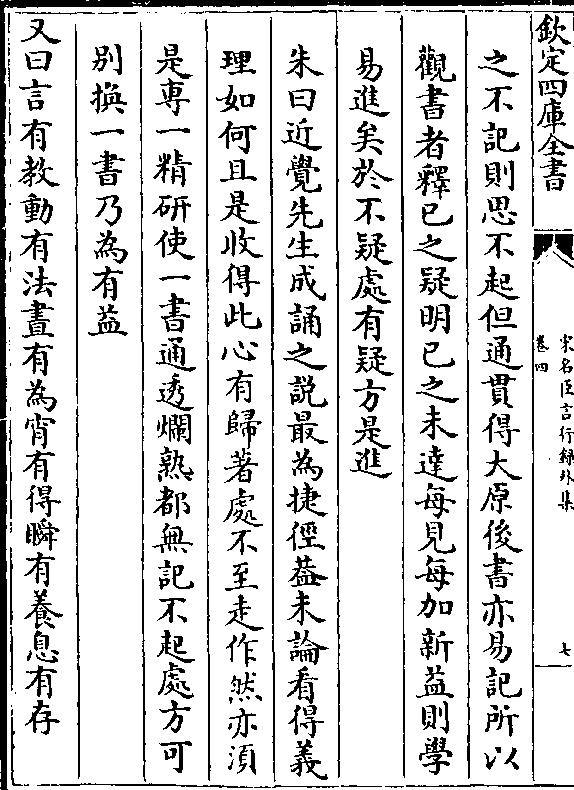 欽定四庫全書
宋名臣言行録外集
卷四
七
之不記則思不起但通貫得大原後書亦易記所以
觀書者釋已之疑明已之未達每見每加新益則學
易進矣於不疑處有疑方是進
朱曰近覺先生成誦之説最為捷徑葢未論看得義
理如何且是收得此心有歸著處不至走作然亦湏
是専一精研使一書通透爛熟都無記不起處方可
别換一書乃為有益
又曰言有教動有法晝有為宵有得瞬有養息有存